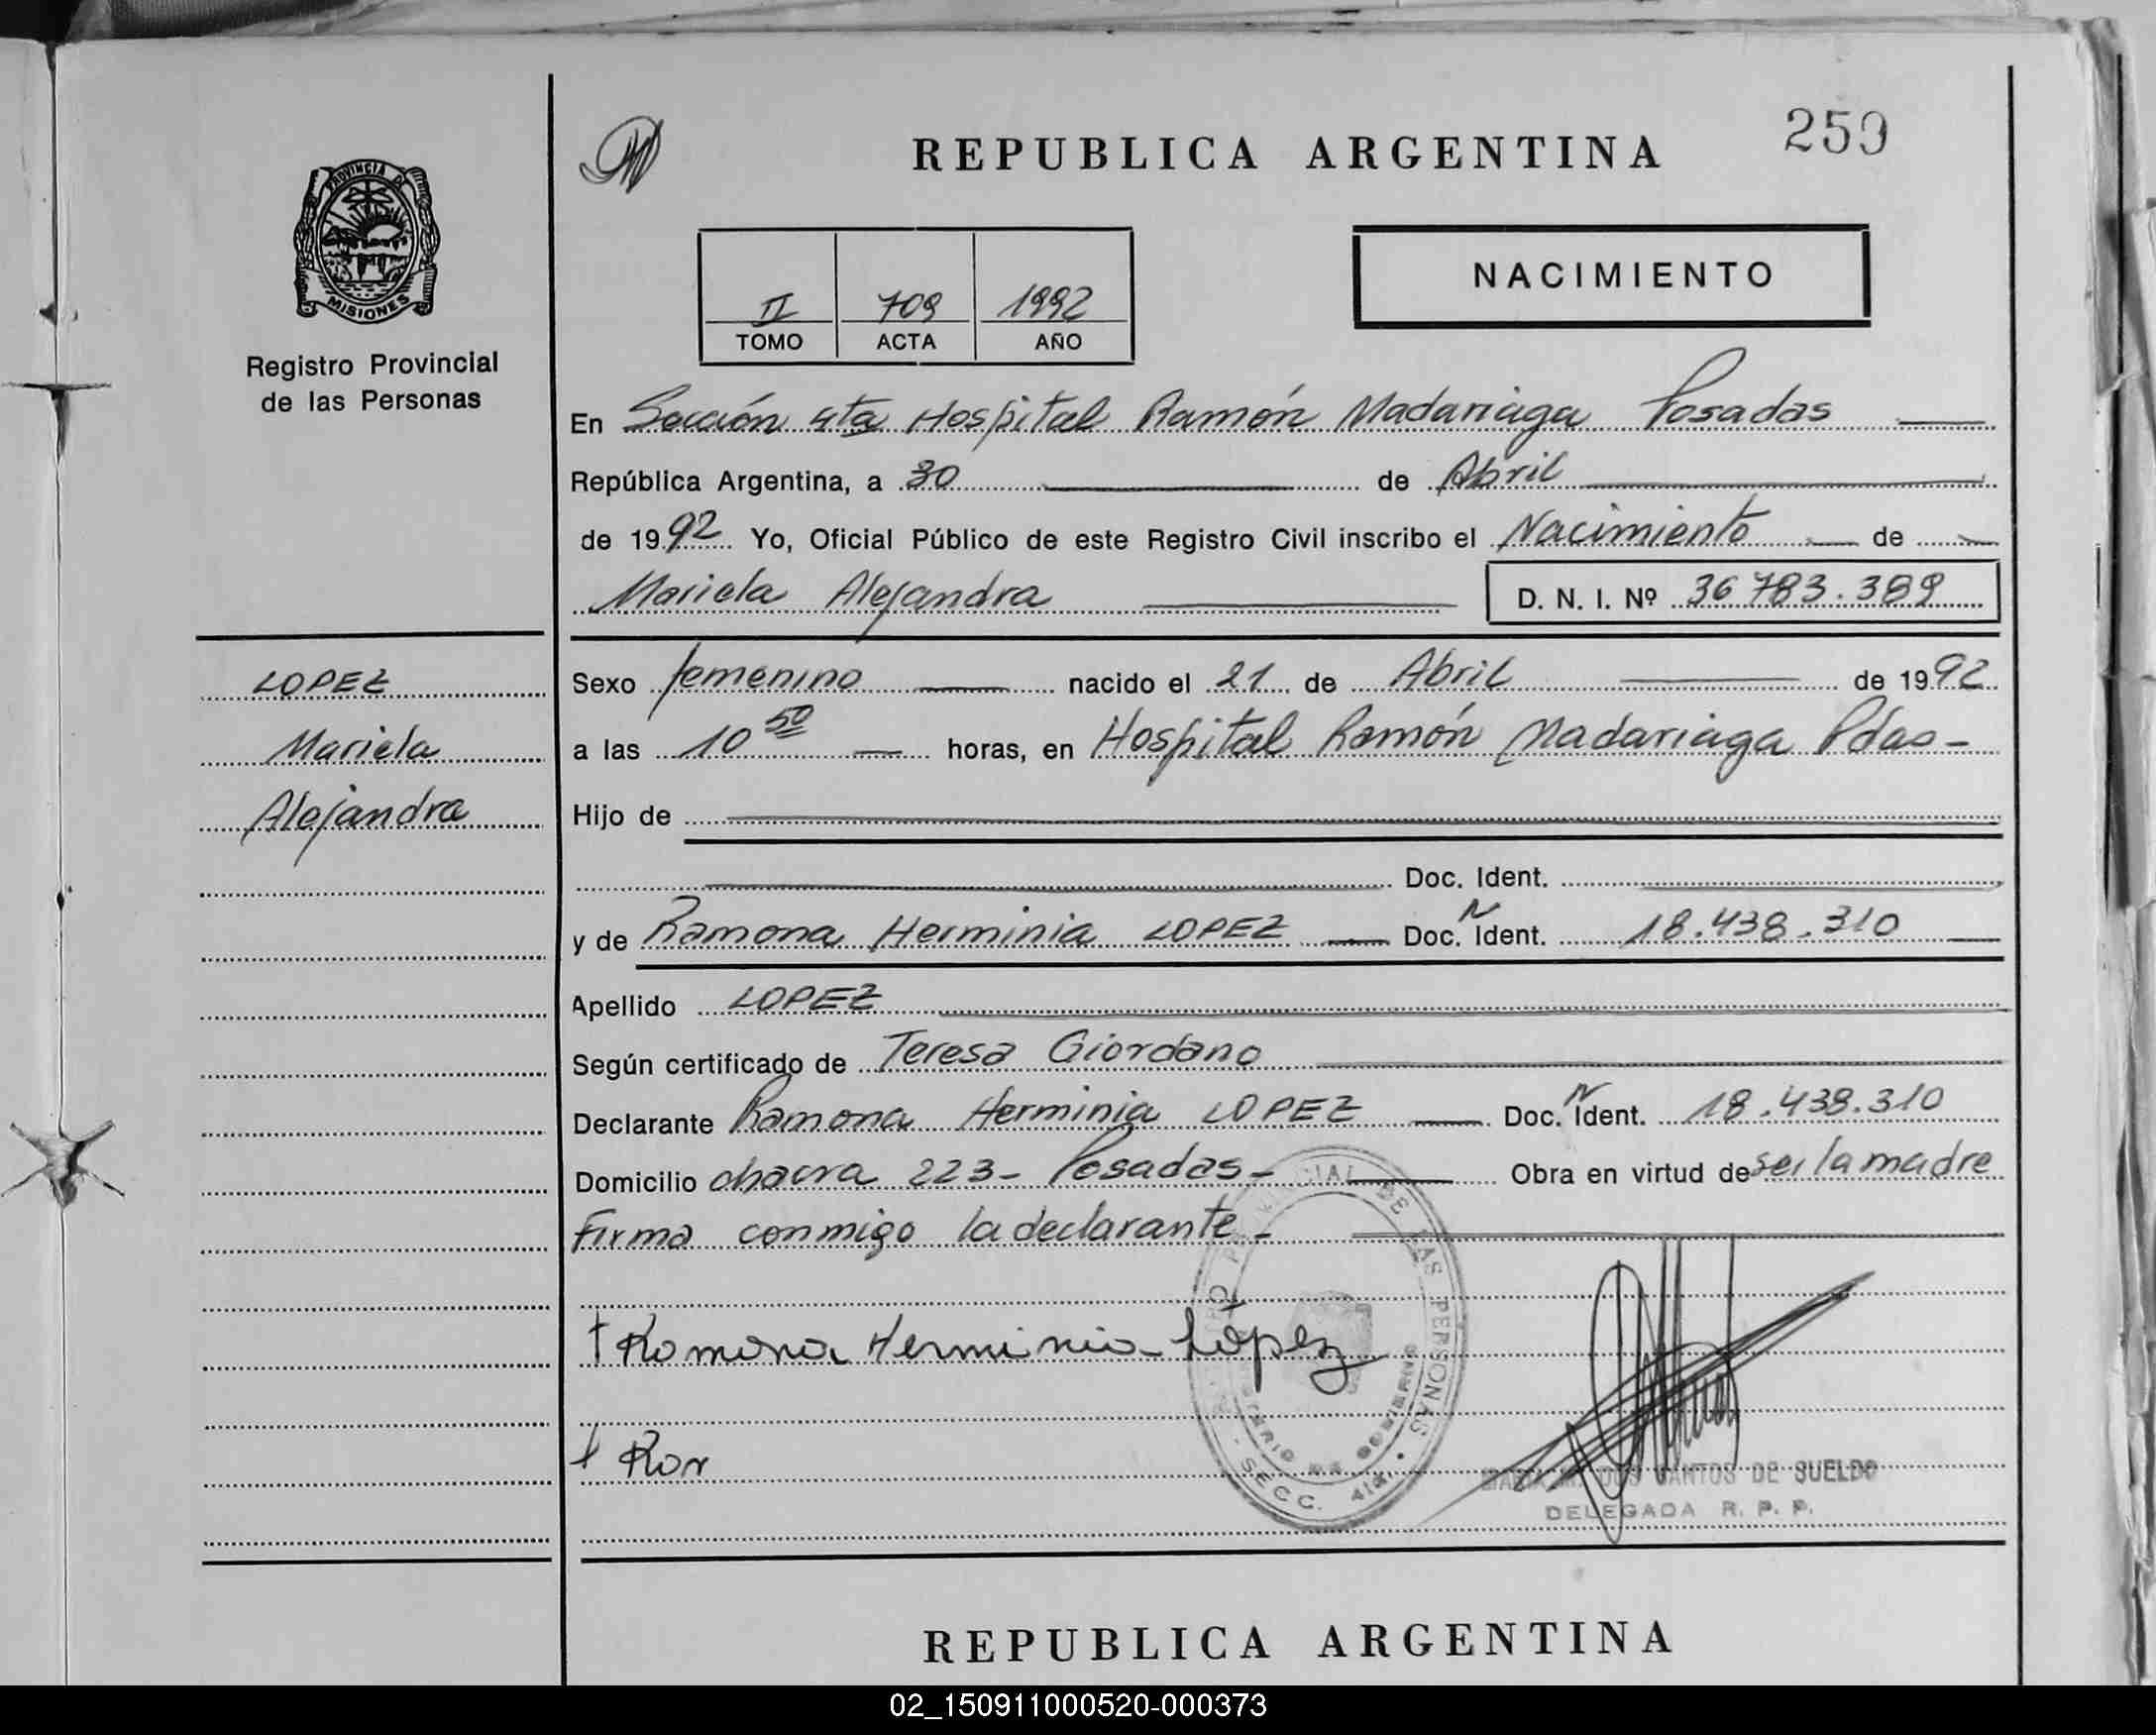 REPUBLICA ARGENTINA
259
PROVINCIA DE
MISIONES
Registro Provincial
de las Personas
II 709 1992
TOMO ACTA AÑO
NACIMIENTO
En Sección 4ta Hospital Ramón Madariaga Posadas
República Argentina, a 30 de Abril
de 1992 Yo, Oficial Público de este Registro Civil inscribo el Nacimiento de
Mariela Alejandra D. N. I. Nº 36783.389
LOPEZ
Mariela
Alejandra
Sexo femenino nacido el 21 de Abril de 1992
a las 10 50 horas, en Hospital Ramón Madariaga Pdas-
Hijo de
Doc. Ident.
y de Ramona Herminia LOPEZ Doc. N Ident. 18.438.310
Apellido LOPEZ
Según certificado de Teresa Giordano
Declarante Ramona Herminia LOPEZ Doc. N Ident. 18.438.310
Domicilio chacra 223- Posadas- Obra en virtud de ser la madre
Firma conmigo la declarante-
Ramona Herminia López
Ror
PROVINCIAL DE LAS PERSONAS
SECC. 4ta
DOS SANTOS DE SUELDO
DELEGADA R. P. P.
REPUBLICA ARGENTINA
02_150911000520-000373